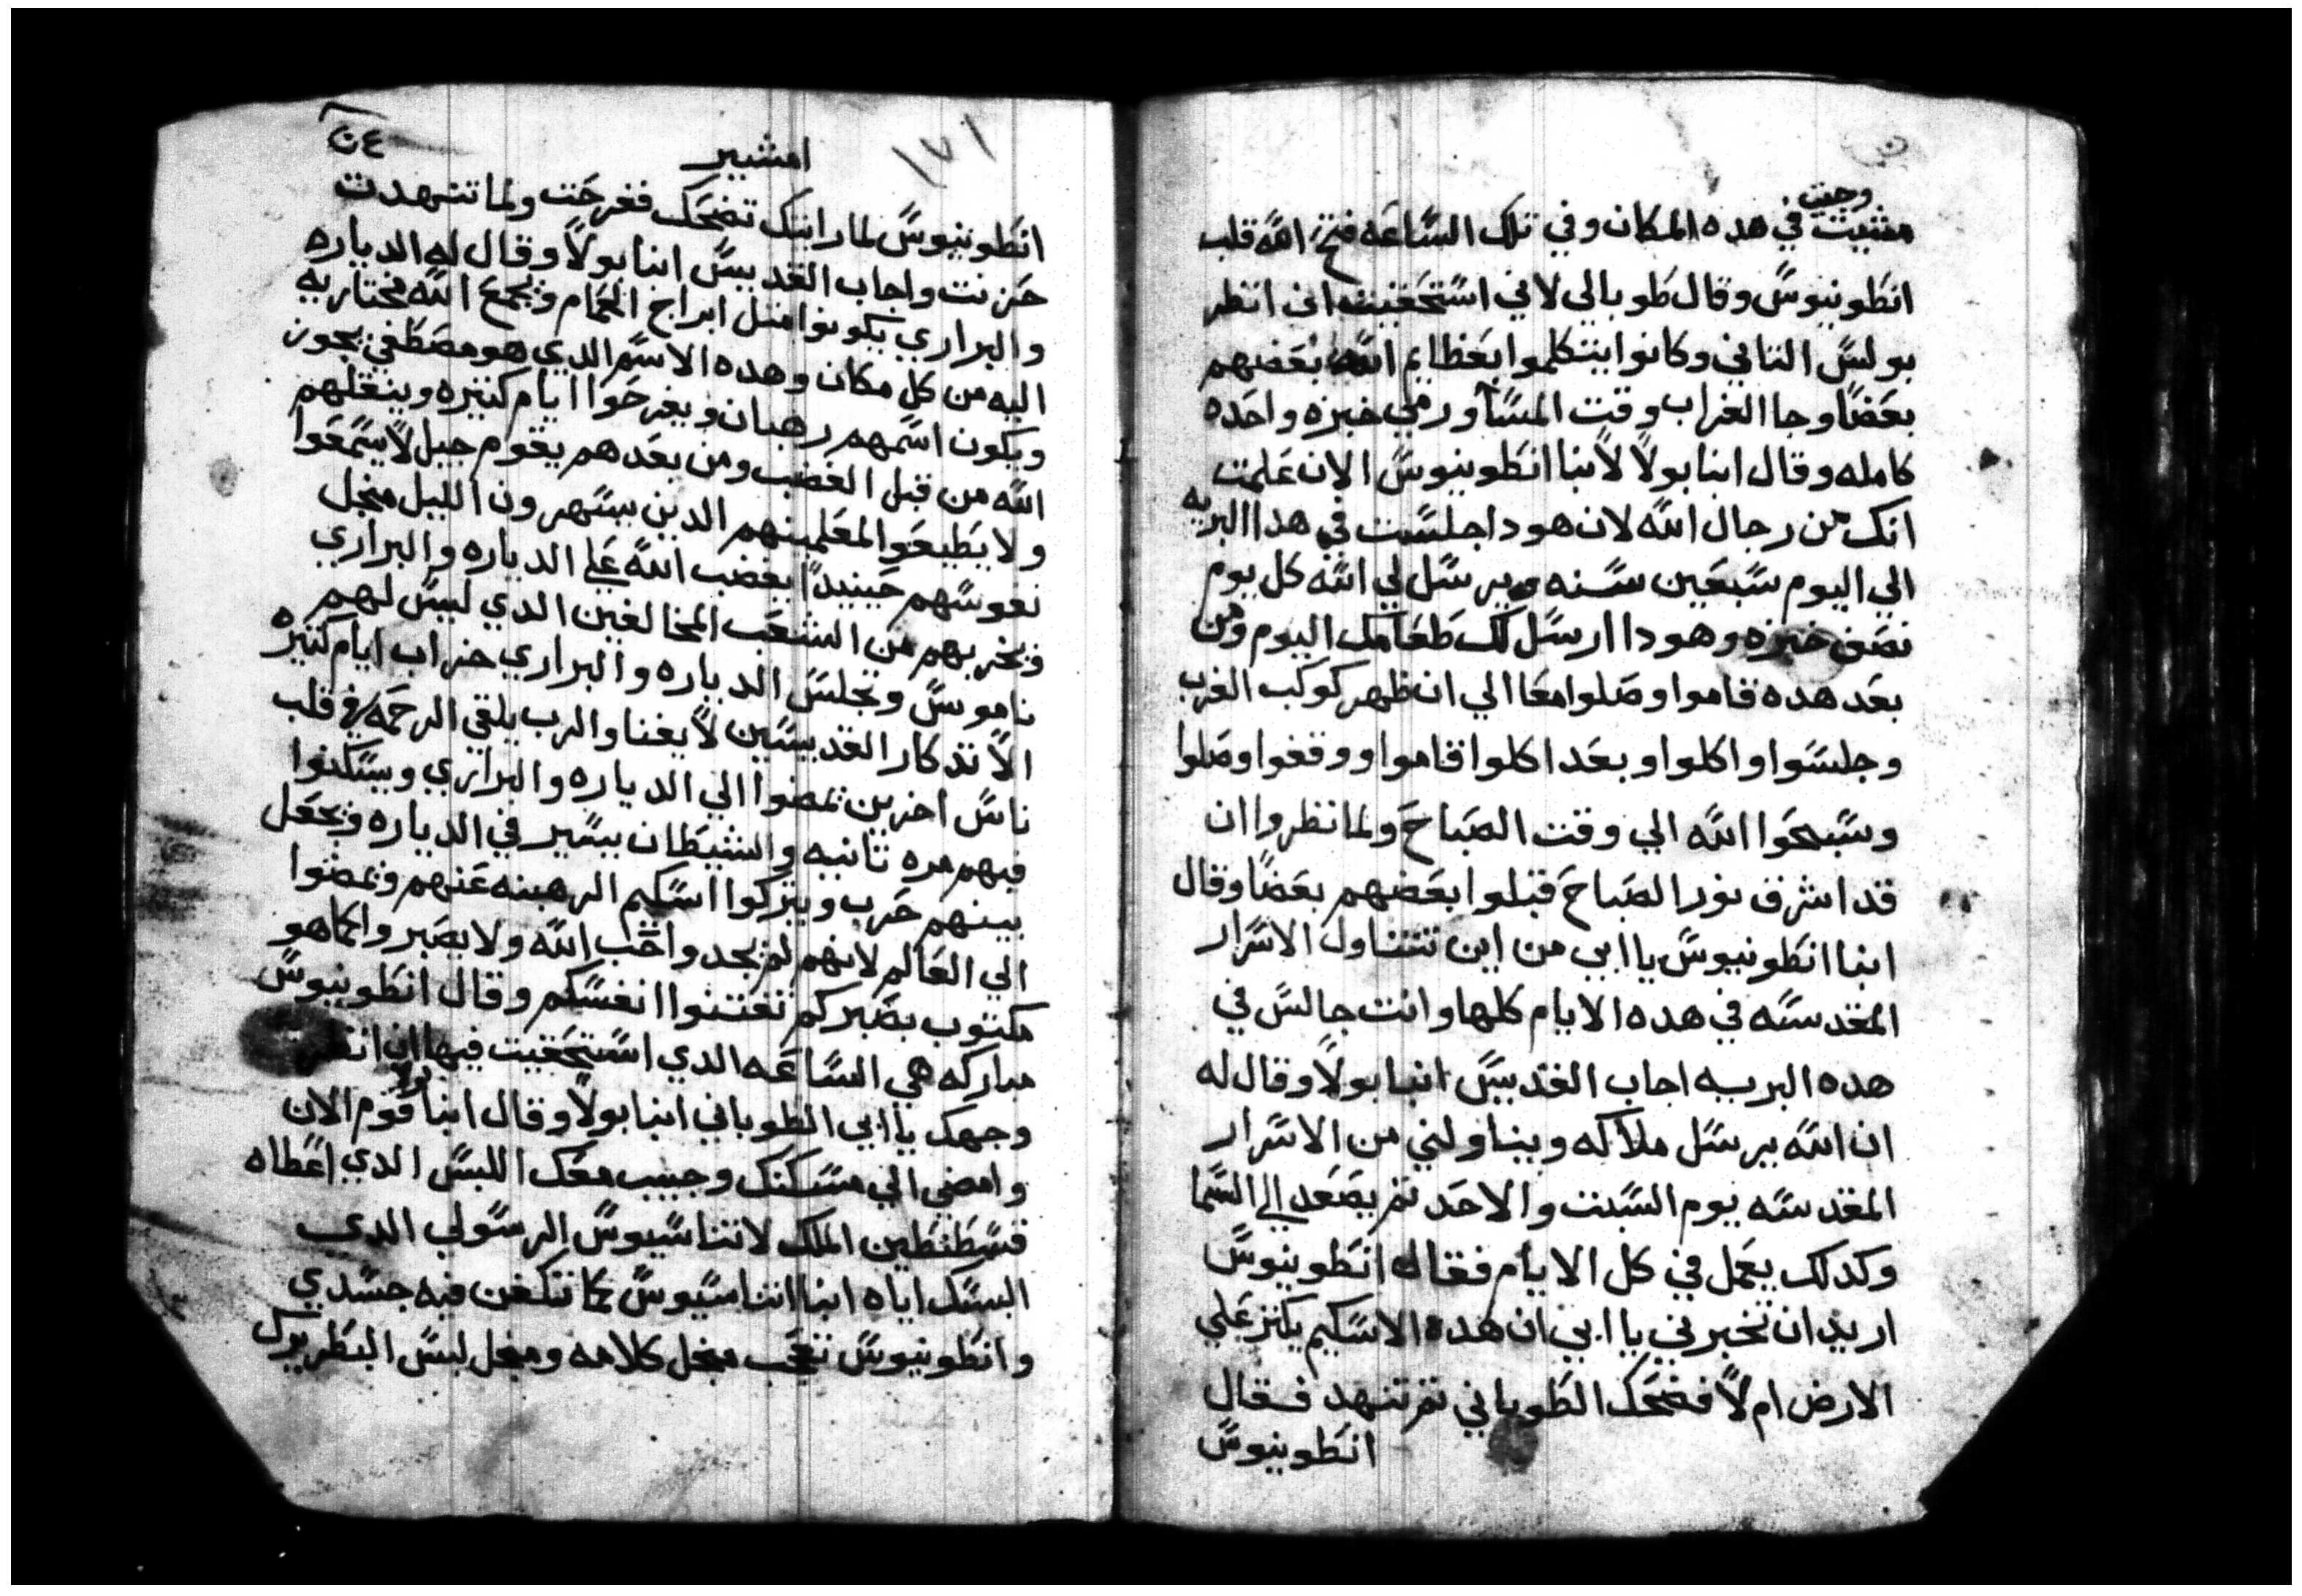 وجيت
مشيت في هده المكان وفي تلك الساعه فتح الله قلب
انطونيوس وقال طوبالي لاني استحقيت انى انظر
بولس التاني وكانوا يتكلموا بعظايم الله بعضهم
بعضا وجا الغراب وقت المسا ورمي خبزه واحده
كامله وقال انبا بولا لانبا انطونيوس الان علمت
انك من رجال الله لان هودا جلست في هدا البريه
الي اليوم سبعين سنه ويرسل لي الله كل يوم
نصف خبزه وهودا ارسل لك طعامك اليوم ومن
بعد هده قاموا وصلوا معا الي ان ظهر كوكب الغرب
وجلسوا واكلوا وبعدا كلوا قاموا ووقفوا وصلوا
وسبحوا الله الي وقت الصباح ولما نظروا ان
قد اشرق نور الصباح قبلوا بعضهم بعضا وقال
انبا انطونيوس يا ابي من اين تتناول الاسرار
المقدسه في هده الايام كلها وانت جالس في
هده البريه اجاب القديس انبا بولا وقال له
ان الله يرسل ملاكه ويناولني من الاسرار
المقدسه يوم السبت والاحد تم يصعد الي السما
وكدلك يعمل في كل الايام فقال انطونيوس
اريد ان تخبرني يا ابي ان هده الاسكيم يكتر علي
الارض ام لا فضحك الطوباني تم تنهد فقال
انطونيوس
١٧١
امشير
انطونيوس لما رايتك تضحك ففرحت ولما تنهدت
حزنت واجاب القديس انبا بولا وقال له الدياره
والبراري يكونوا متل ابراج الحمام ويجمع الله مختاريه
اليه من كل مكان وهده الاسم الدي هو مصطفي يجوز
ويكون اسمهم رهبان ويفرحوا ايام كتيره وينقلهم
الله من قبل الغضب ومن بعدهم يقوم جيل لا يسمعوا
ولا يطيعوا لمعلمينهم الدين يسهرون الليل منجل
نفوسهم حينيدا يغضب الله علي الدياره والبراري
ويخربهم من الشعب المخالفين الدي ليس لهم
ناموس وتجلس الدياره والبراري خراب ايام كتيره
الا تدكار القديسين لا يفنا والرب يلقي الرحمه في قلب
ناس اخرين تمضوا الي الدياره والبراري ويسكنوا
فيهم مره تانيه والشيطان يسير في الدياره ويجعل
بينهم حرب ويتركوا اسكيم الرهبنه عنهم ويمضوا
الي العالم لانهم لم يجدوا حب الله ولا يصبر وانما هو
مكتوب بصبركم تقتنوا انفسكم وقال انطونيوس
مباركه هي الساعه الدي استحقيت فيها ان انظر
وجهك يا ابي الطوباني انبا بولا وقال انبا قوم الان
وامضي الي مسكنك وجيب معك اللبس الدي اعطاه
قسطنطين الملك لاتناسيوس الرسولي الدى
البسك اياه انبا اتناسيوس كما تتكفن فيه جسدي
وانطونيوس تعجب منجل كلامه ومنجل لبس البطريرك